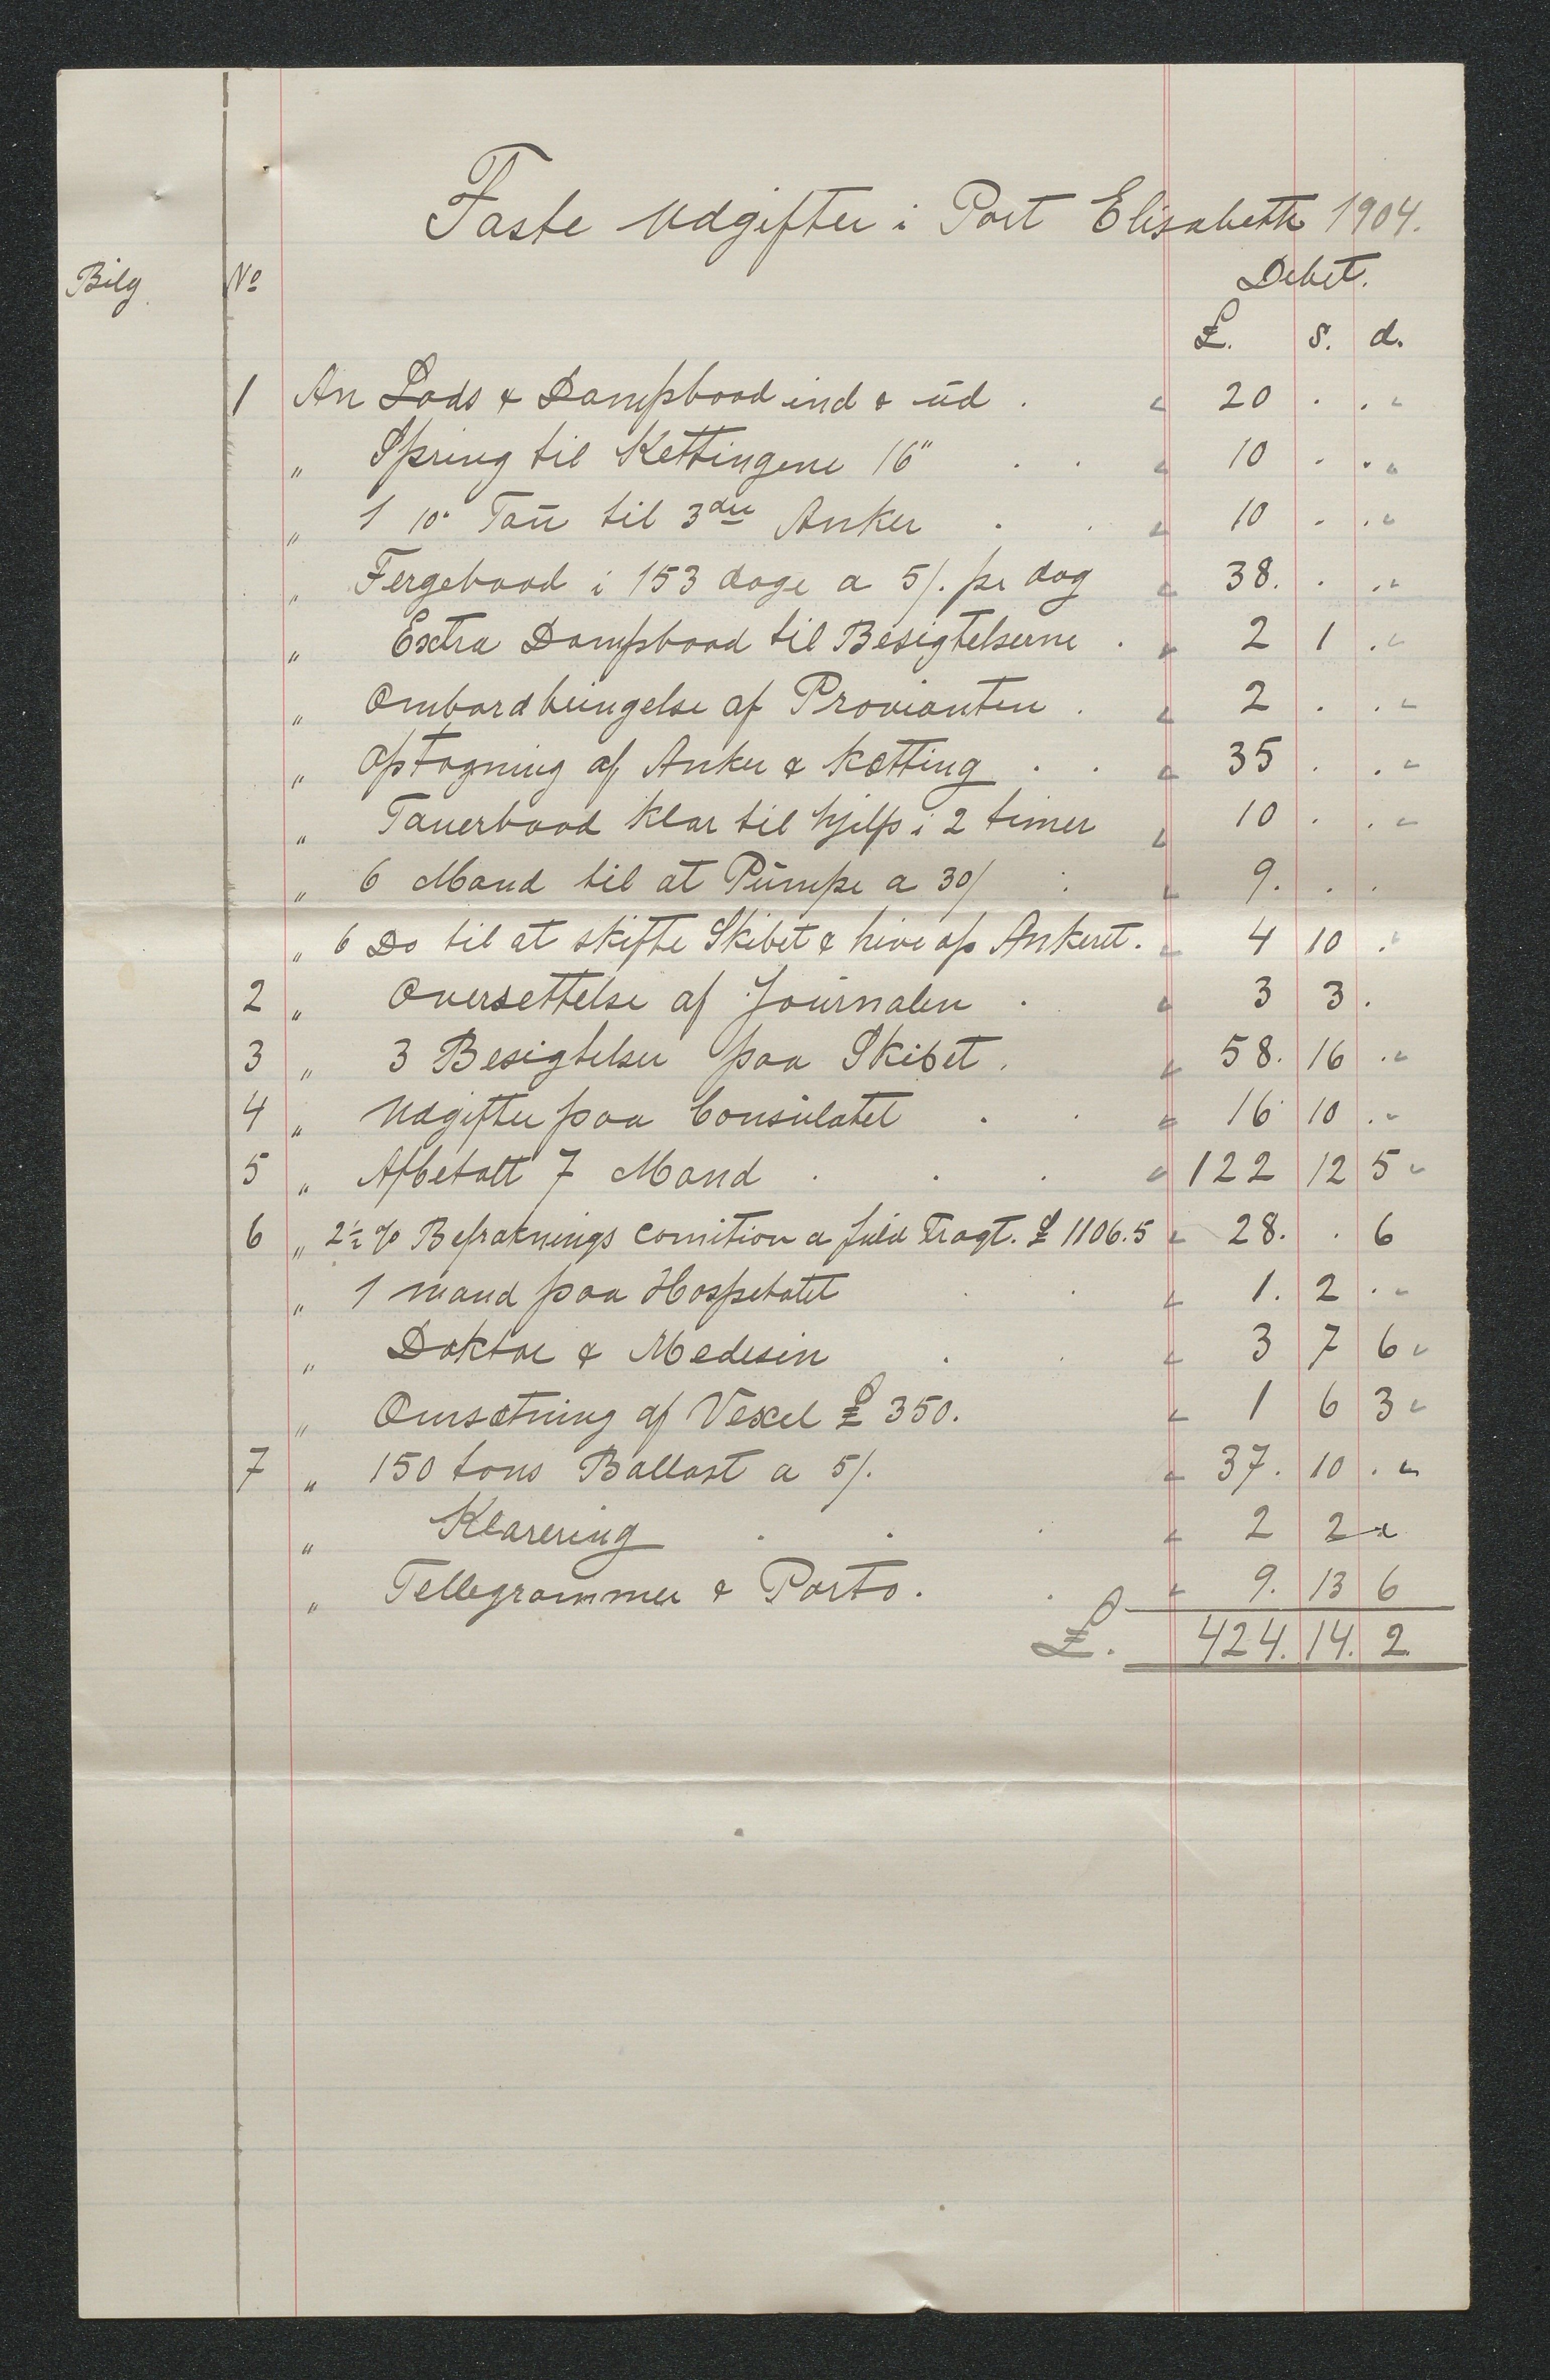 Faste Udgifter i Port Elisabeth 1904.
Bilg. No Debet.
£. s. d.
1 An Lods & Dampbaad ind & ud . " 20 . . "
" Spring til Kettingene 16" . . " 10 . . "
" 1 10" Tau til 3die Anker . . " 10 . . "
" Fergebaad i 153 dage a 5/. pr dag " 38. . . "
" Extra Dampbaad til Besigtelserne . " 2 1 . "
" Ombordbringelse af Provianten . " 2 . . "
" Optagning af Anker & Kætting . . " 35 . . "
" Tauerbaad klar til hjelp i 2 timer " 10 . . "
" 6 Mand til at Pumpe a 30/ . " 9. . .
" 6 Do til at skifte Skibet & hive op Ankeret. " 4 10 . "
2 " Oversettelse af Journalen . " 3 3 .
3 " 3 Besigtelser paa Skibet . " 58. 16 . "
4 " Udgifter paa Consulatet . . " 16 10 . "
5 " Afbetalt 7 Mand . . . " 122 12 5 "
6 " 2½ % Befraknings comition a fuld Fragt. £ 1106.5 " 28. . 6
" 1 mand paa Hospetalet . . " 1. 2 . "
" Doktor & Medesin . . " 3 7 6 "
" Omsætning af Vexel £ 350. " 1 6 3 "
7 " 150 tons Ballast a 5/. " 37. 10 . "
" Klarering . . . " 2 2 "
" Tellegrammer & Porto. . " 9. 13 6
£. 424. 14. 2.